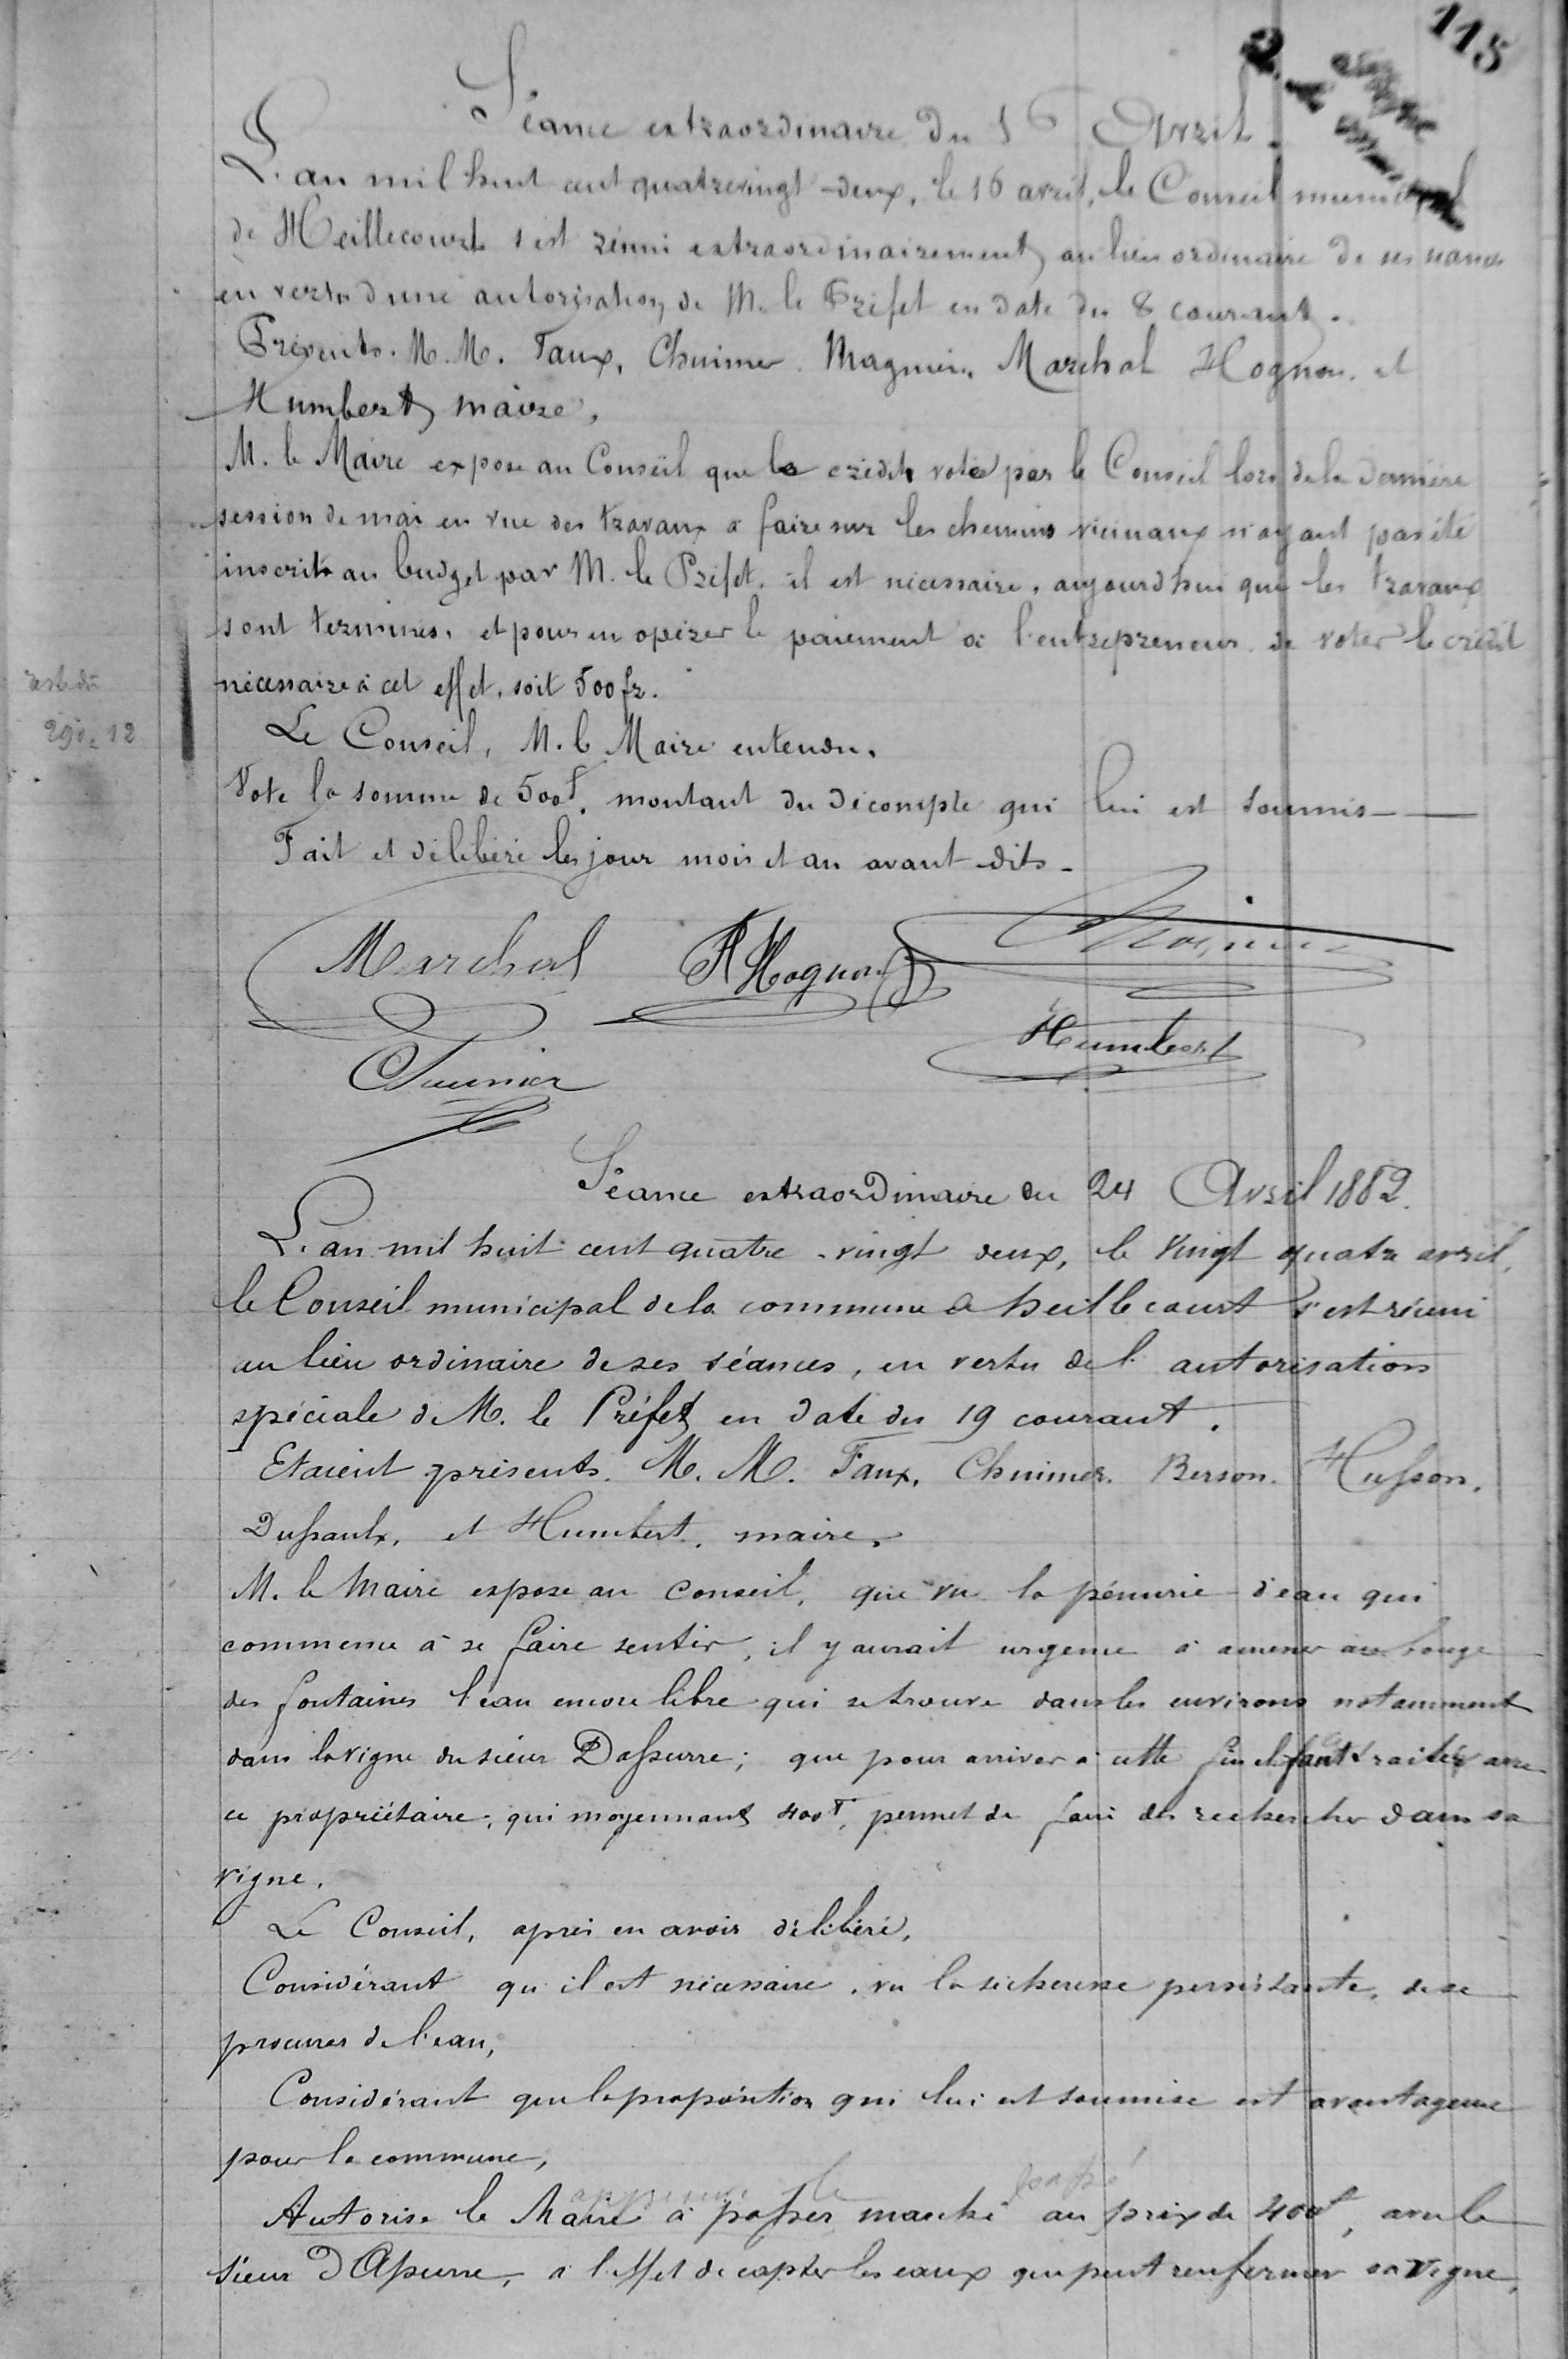 115
2
Séance extraordinaire du 16 Avril.
L'an mil huit cent quatrevingt-deux, le 16 avril, le Conseil municipal
de Heillecourt s'est réuni extraordinairement au lieu ordinaire de ses séances
en vertu d'une autorisation de M. le Préfet en date du 8 courant.
Présents. M.M. Faux, Chuimer. Magnien, Marchal Hognon. et
Humbert, maire.
M. le Maire expose au Conseil que le crédit voté par le Conseil lors de la dernière
session de mai en vue des travaux à faire sur les chemins vicinaux n'ayant pas été
inscrit au budget par M. le Préfet, il est nécessaire, aujourd'hui que les travaux
sont terminés, et pour en opérer le paiement à l'entrepreneur de voter le crédit
nécessaire à cet effet, soit 500 fr.
reste dû
290. 12
Le Conseil, M. le Maire entendu.
Vote la somme de 500f. montant du décompte qui lui est soumis
Fait et délibéré les jour mois et an avant-dits.
Marchal Hognon
Humbert
Séance extraordinaire du 24 Avril 1882.
L'an mil huit cent quatre-vingt deux, le vingt quatre avril,
le Conseil municipal de la commune d'heillecourt s'est réuni
au lieu ordinaire de ses séances, en vertu de l'autorisation
spéciale de M. le Préfet en date du 19 courant.
Etaient présents. M. M. Faux, Chuimer. Berson. Husson,
Dussaulx, et Humbert, maire.
M. le Maire expose au Conseil, que vu la pénurie d'eau qui
commence à se faire sentir, il y aurait urgence à amener au
des fontaines l'eau encore libre qui se trouve dans les environs notamment
dans la vigne du sieur Dasseurre; que pour arriver à cette fin il faut traiter avec
ce propriétaire, qui moyennant 400f, permet de faire des recherches dans sa
vigne.
Le Conseil, après en avoir délibéré,
Considérant qu'il est nécessaire, vu la sécheresse persistante, de se
procurer de l'eau,
Considérant que la proposition qui lui est soumise est avantageuse
pour la commune,
approuve le passé
Autorise le Maire à passer marché au prix de 400f, avec le
sieur Dasseurre, à l'effet de capter les eaux que peut renfermer sa vigne,